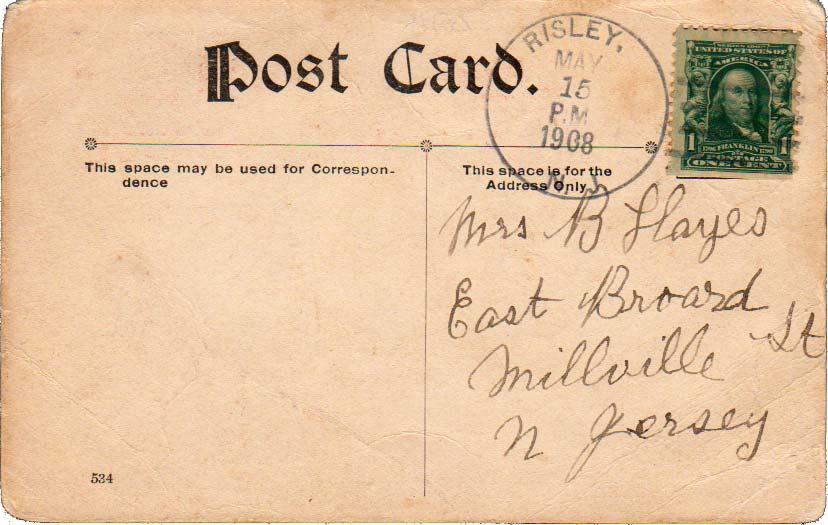 Post Card.
RISLEY,
MAY
15
P.M
1908
N.J.
SERIES 1902
UNITED STATES OF
AMERICA
1706 FRANKLIN 1790
1 1
POSTAGE
ONE CENT
This space may be used for Correspon-
dence
This space is for the
Address Only
Mrs B Hayes
East Broard
St
Millville
N Jersey
534